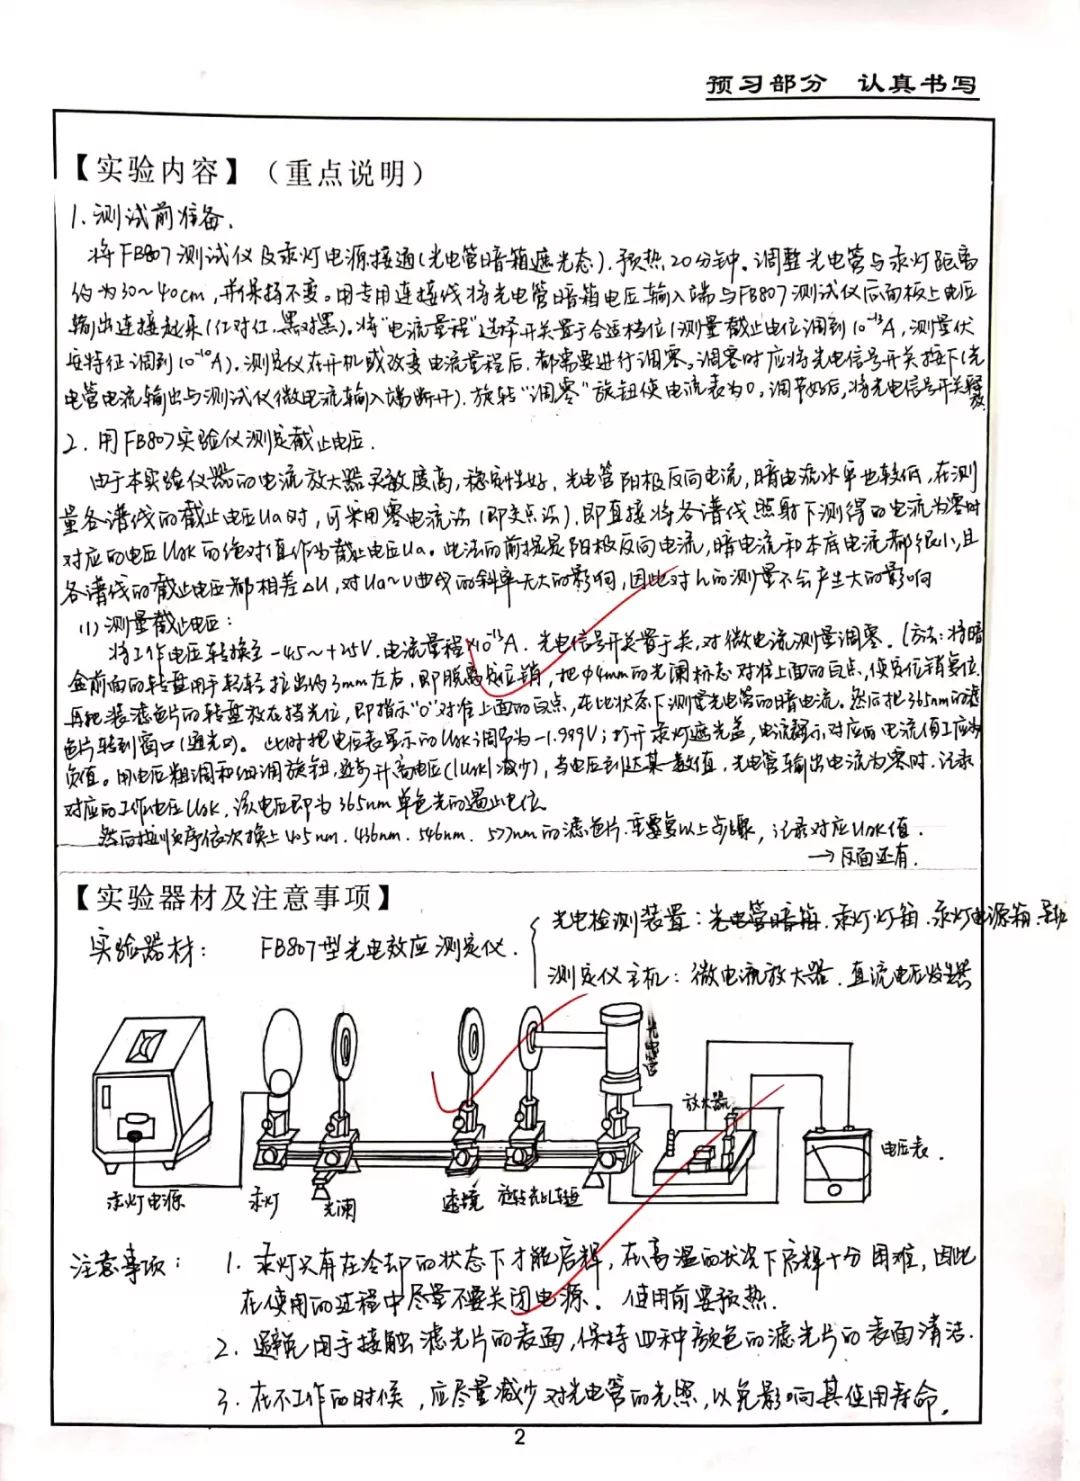 预习部分 认真书写
【实验内容】（重点说明）
1. 测试前准备.
将FB807测试仪及汞灯电源接通(光电管暗箱遮光态),预热20分钟。调整光电管与汞灯距离
约为30~40cm,并保持不变。用专用连接线将光电管暗箱电压输入端与FB807测试仪后面板上电压
输出连接起来(红对红,黑对黑)。将"电流量程"选择开关置于合适档位(测量截止电位调到10⁻¹³A,测量伏
安特征调到10⁻¹⁰A)。测定仪在开机或改变电流量程后,都需要进行调零。调零时应将光电信号开关按下(光
电管电流输出与测试仪微电流输入端断开),旋转"调零"旋钮使电流表为0。调节好后,将光电信号开关
2. 用FB807实验仪测定截止电压.
由于本实验仪器的电流放大器灵敏度高,稳定性好,光电管阳极反向电流,暗电流水平也较低,在测
量各谱线的截止电压Ua时,可采用零电流法(即交点法),即直接将各谱线照射下测得的电流为零时
对应的电压UaK的绝对值作为截止电压Ua。此法的前提是阳极反向电流,暗电流和本底电流都很小,且
各谱线的截止电压都相差ΔU,对Ua~ν曲线的斜率无大的影响,因此对h的测量不会产生大的影响
(1)测量截止电压:
将工作电压转换至-4.5~+2.5V,电流量程×10⁻¹³A.光电信号开关置于关,对微电流测量调零.(方法:将暗
盒前面的转盘用手轻轻拉出约3mm左右,即脱离定位销,把φ4mm的光阑标志对准上面的白点,使定位销复位.
再把装滤色片的转盘放在挡光位,即指示"0"对准上面的白点,在此状态下测量光电管的暗电流。然后把365nm的滤
色片转到窗口(通光口)。此时把电压表显示的UaK调节为-1.999V;打开汞灯遮光盖,电流表显示对应的电流值I应为
负值。用电压粗调和细调旋钮,逐步升高电压(|UaK|减少),当电压到达某一数值,光电管输出电流为零时,记录
对应的工作电压UaK,该电压即为365nm单色光的遏止电位.
然后按顺序依次换上405nm,436nm,546nm,577nm的滤色片,重复以上步骤,记录对应UaK值.
→反面还有.
【实验器材及注意事项】
光电检测装置:光电管暗箱.汞灯灯箱.汞灯电源箱.导轨
实验器材: FB807型光电效应测定仪.
测定仪主机:微电流放大器.直流电压发生器
光电管
放大器
电压表.
汞灯电源 汞灯 光阑 透镜
注意事项: 1. 汞灯只有在冷却的状态下才能启辉,在高温的状况下启辉十分困难,因此
在使用的过程中尽量不要关闭电源. 使用前要预热.
2. 避免用手接触滤光片的表面,保持四种颜色的滤光片的表面清洁.
3. 在不工作的时候,应尽量减少对光电管的光照,以免影响其使用寿命.
2